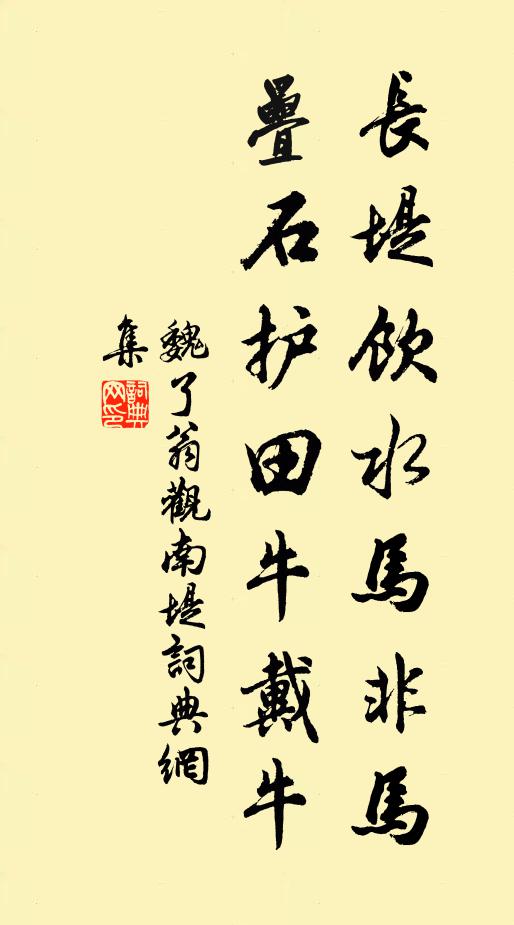 長堤飲水馬非馬
疊石护田牛戴牛
魏了翁觀南堤詞典網
集
詞典
网印